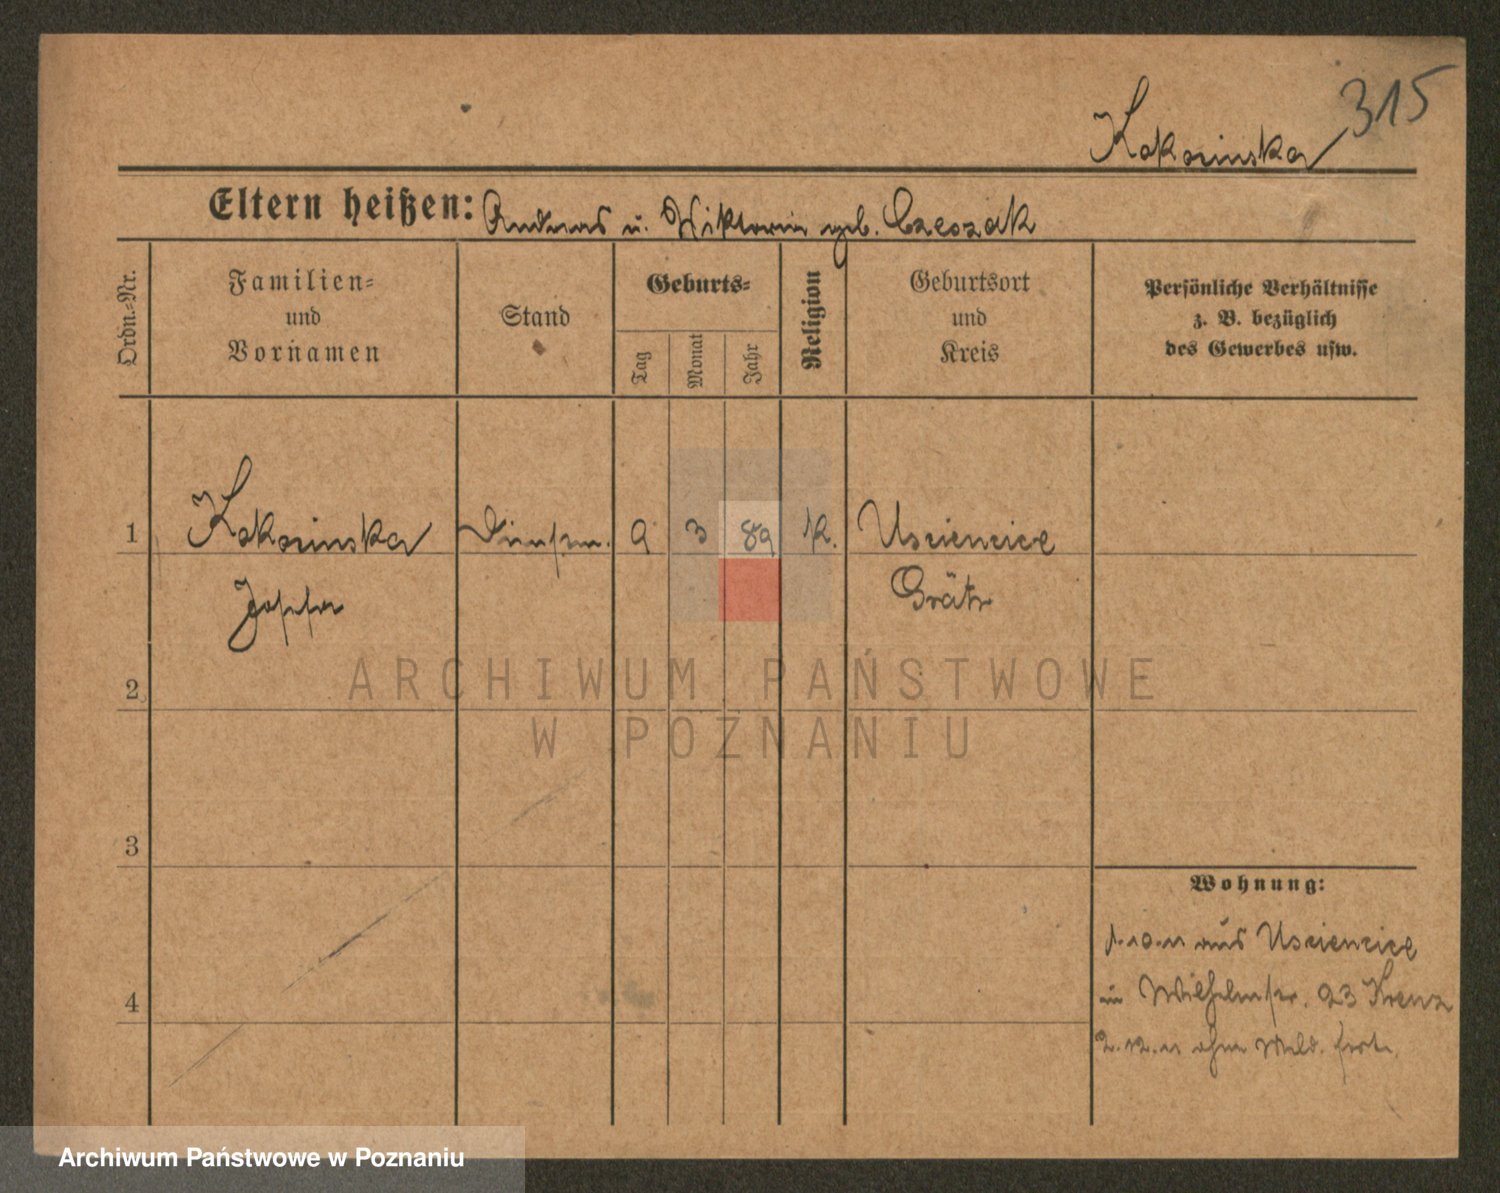 315
Kokocinska
Eltern heißen: Andreas u. Wiktoria geb. Czeszak
Ordn.-Nr.
Familien-
und
Vornamen
Stand
Geburts-
Tag
Monat
Jahr
Religion
Geburtsort
und
Kreis
Persönliche Verhältnisse
z. B. bezüglich
des Gewerbes usw.
1 Kokocinska 9 3 89 K. Usciencice
Grätz
2
ARCHIWUM PAŃSTWOWE
W POZNANIU
3
Wohnung:
1.10.11 aus Usciencice
in Wilhelmstr. 23 Krenz
4
2.12.11 ohne Meld. fort.
Archiwum Państwowe w Poznaniu